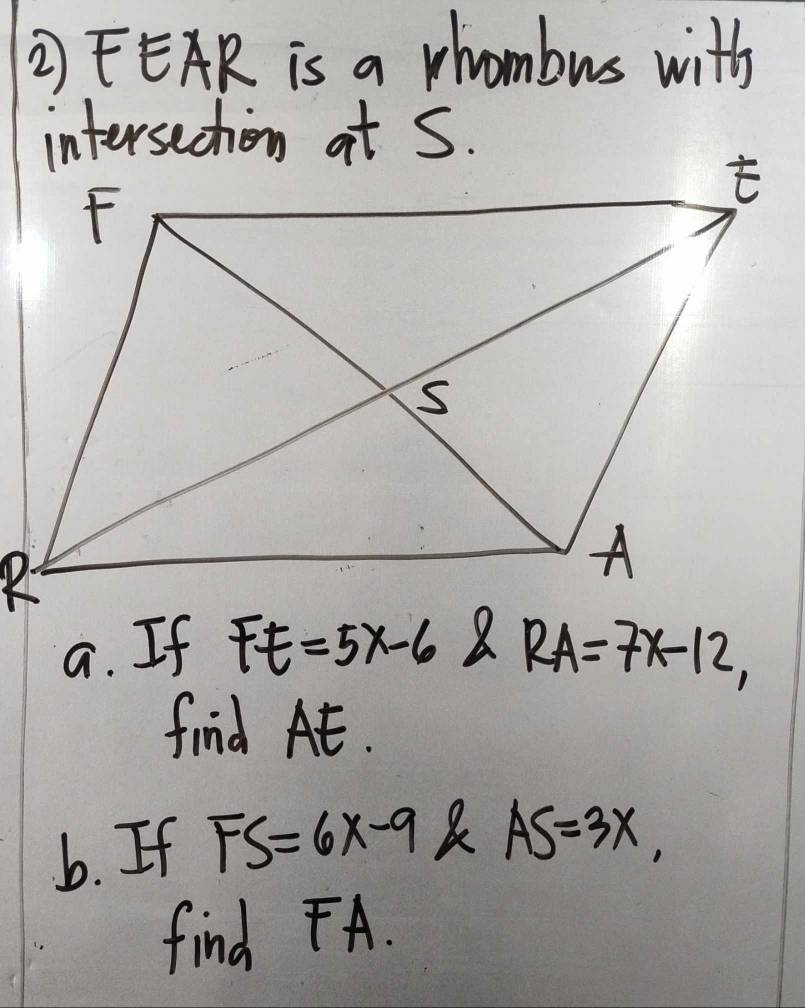 2) FEAR is a rhombus with
intersection at S.
E
F
S
A
R
a. If FE=5x-6 & RA=7x-12,
find AE.
b. If FS=6x-9 & AS=3x,
find FA.